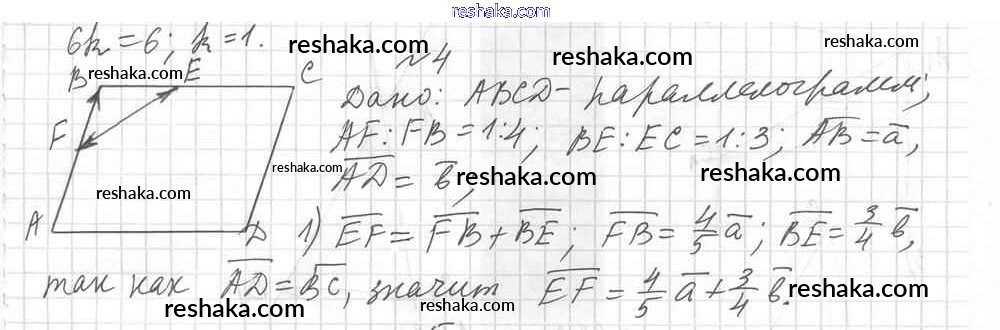 gdz.reshaka.com
6k = 6; k = 1.
reshaka.com
№4
reshaka.com
reshaka.com
B E C
reshaka.com
Дано: ABCD – параллелограмм;
F
AF : FB = 1:4; BE : EC = 1:3; \overline{AB} = \overline{a},
reshaka.com
\overline{AD} = \overline{b},
reshaka.com
reshaka.com
reshaka.com
A D
1) \overline{EF} = \overline{FB} + \overline{BE}; \overline{FB} = \frac{4}{5}\overline{a}; \overline{BE} = \frac{3}{4}\overline{b},
так как \overline{AD} = \overline{BC}, значит \overline{EF} = \frac{4}{5}\overline{a} + \frac{3}{4}\overline{b}.
reshaka.com
reshaka.com
reshaka.com